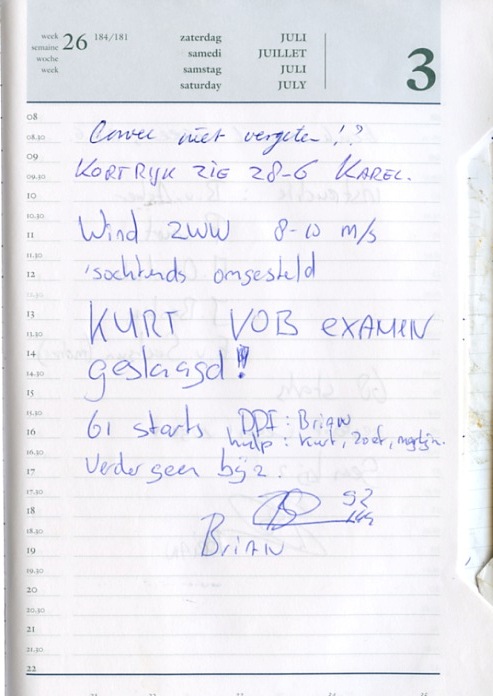 week 26 184/181 zaterdag JULI 3
semaine samedi JUILLET
woche samstag JULI
week saturday JULY
08
08.30 Corvee niet vergeten !?
09
09.30 KORTRIJK ZIE 28-6 KAREL.
10
10.30
11 Wind ZWW 8-10 m/s
11.30
12 'sochtends omgesteld
12.30
13 KURT VOB EXAMEN
13.30
14 geslaagd!!
14.30
15
15.30
16 61 starts DDI : Brian
16.30 hulp : Kurt, Zoef,
17 Verder geen bijz.
17.30
18
18.30
19 BRIAN
19.30
20
20.30
21
21.30
22